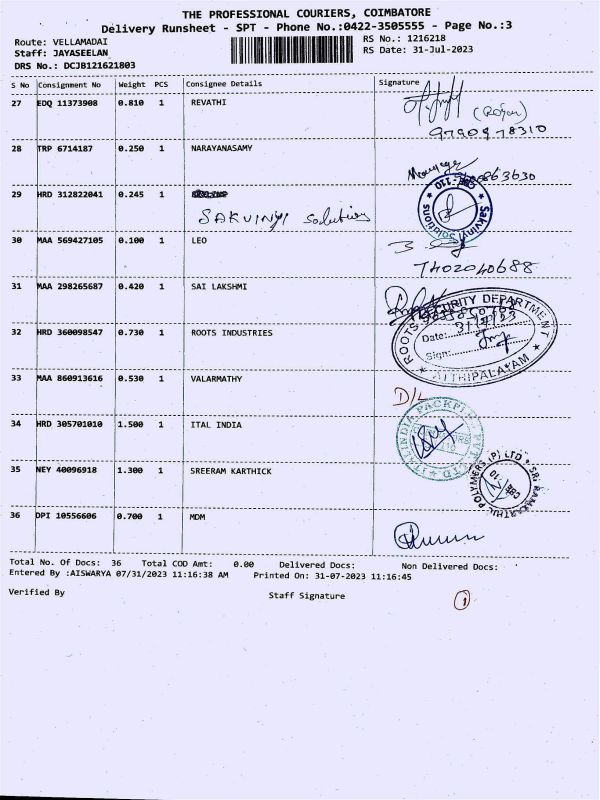 THE PROFESSIONAL COURIERS, COIMBATORE
Delivery Runsheet - SPT - Phone No.:0422-3505555 - Page No.:3
Route: VELLAMADAI RS No.: 1216218
Staff: JAYASEELAN RS Date: 31-Jul-2023
DRS No.: DCJB121621803
S No Consignment No Weight PCS Consignee Details Signature
27 EDQ 11373908 0.810 1 REVATHI
9790978310
28 TRP 6714187 0.250 1 NARAYANASAMY
29 HRD 312822041 0.245 1
SAKVINYI Solutions
CBE-110
Sakvinyi Solutions
30 MAA 569427105 0.100 1 LEO
7402040688
31 MAA 298265687 0.420 1 SAI LAKSHMI
32 HRD 360098547 0.730 1 ROOTS INDUSTRIES
ROOTS SECURITY DEPARTMENT
Date: 31/7/23
Sign:
ATHIPALAYAM
33 MAA 860913616 0.530 1 VALARMATHY
D/L
34 HRD 305701010 1.500 1 ITAL INDIA
35 NEY 40096918 1.300 1 SREERAM KARTHICK
36 DPI 10556606 0.700 1 MDM
Total No. Of Docs: 36 Total COD Amt: 0.00 Delivered Docs: Non Delivered Docs:
Entered By :AISWARYA 07/31/2023 11:16:38 AM Printed On: 31-07-2023 11:16:45
Verified By Staff Signature
1